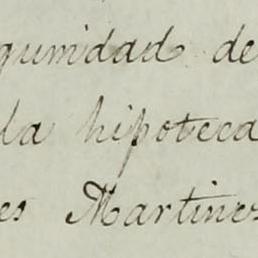 guridad de
la hipoteca
es Martines